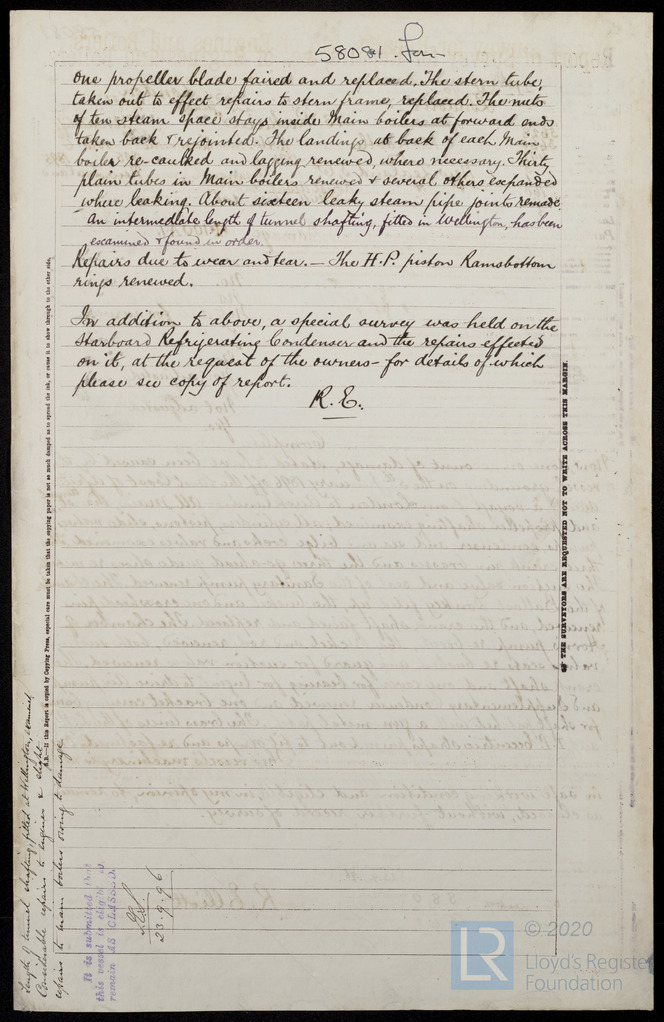 58081. Lon
one propeller blade faired and replaced. The stern tube,
taken out to effect repairs to stern frame, replaced. The nuts
of ten steam space stays inside Main boilers at forward ends
taken back & rejointed. The landings at back of each Main
boiler re-caulked and lagging renewed, where necessary. Thirty
plain tubes in Main boilers renewed & several others expanded
where leaking. About sixteen leaky steam pipe joints remade
An intermediate length of tunnel shafting, fitted in Wellington, has been
examined & found in order.
Repairs due to wear and tear. — The H.P. piston Ramsbottom
rings renewed.
In addition to above, a special survey was held on the
Starboard Refrigerating Condenser and the repairs effected
on it, at the request of the owners - for details of which
please see copy of report.
R. E.
THE SURVEYORS ARE REQUESTED NOT TO WRITE ACROSS THIS MARGIN.
N.B.—If this Report is copied by Copying Press, especial care must be taken that the copying paper is not so much damped as to spread the ink, or cause it to show through to the other side.
Length of tunnel shafting, fitted at Wellington, examined.
Considerable repairs to engines & slight
repairs to main boilers owing to damage
It is submitted that
this vessel is eligible to
remain AS CLASSED.
23.9.96
LR
© 2020
Lloyd's Register
Foundation